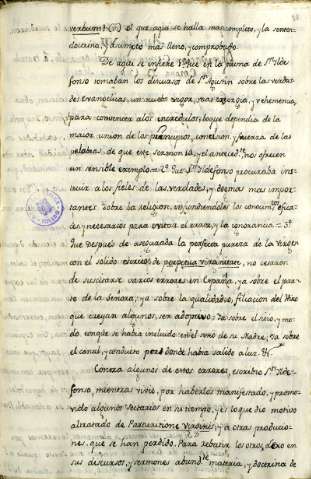 verbum? (n) el que aqui se halla mas completo, y la sent.
doctrina, y assumpto mas lleno, y comprobado.
De aqui se infiere 1º que en la pluma de Sn. Ilde-
fonso tomaban los discursos de Sn. Agustin sobre la verdad
des evangelicas, un nuevo vigor, mas energia, y vehemencia,
para convencer a los incredulos; loque dependia de la
mayor union de los principios, concision, y fuerza de las
palabras de que este sermon 12, y el anteced.te nos ofrecen
un sensible exemplo = 2º que Sn. Ildefonso procuraba ins-
truir a los fieles de las verdades, y dogmas mas impor-
tantes sobre la Religion, imponiendoles los conocim.tos efica-
ces, y necesarios para evitar el error, y la ignorancia = 3º
que despues de asegurada la perfecta pureza de la Virgen
con el solido escrito de perpetua virginitate, no cesaron
de suscitarse varios errores en España, ya sobre el par-
to de la Señora, ya sobre la qualidad, o filiacion del Hijo
que creyan algunos, ser adoptivo; ya sobre el sexo, y mo-
do conque se habia incluido en el seno de su Madre; ya sobre
el canal, y conducto por donde habia salido a luz. &.
Contra algunos de estos errores, escribio Sn. Ilde-
fonso, mientras vivio, por haberlos manifestado, y promo-
vido algunos sectarios en su tiempo, y es lo que dio motivo
al tratado de Parturitione Virginis, y a otras produccio-
nes, que se han perdido. Para rebatir los otros, dexo en
sus discursos, y sermones abund.te materia, y doctrina de